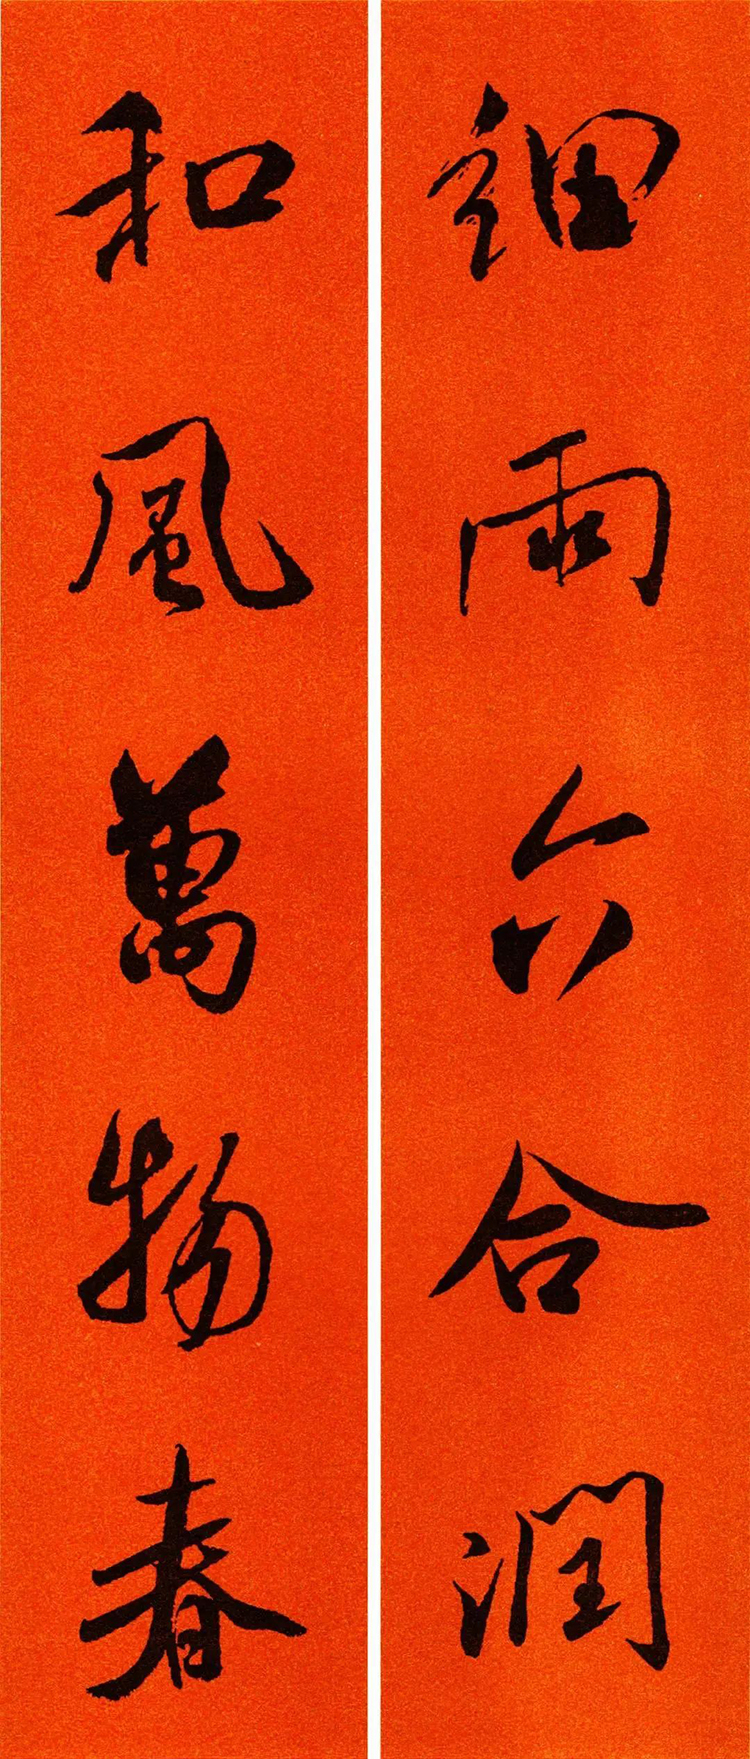 细雨六合润
和風萬物春